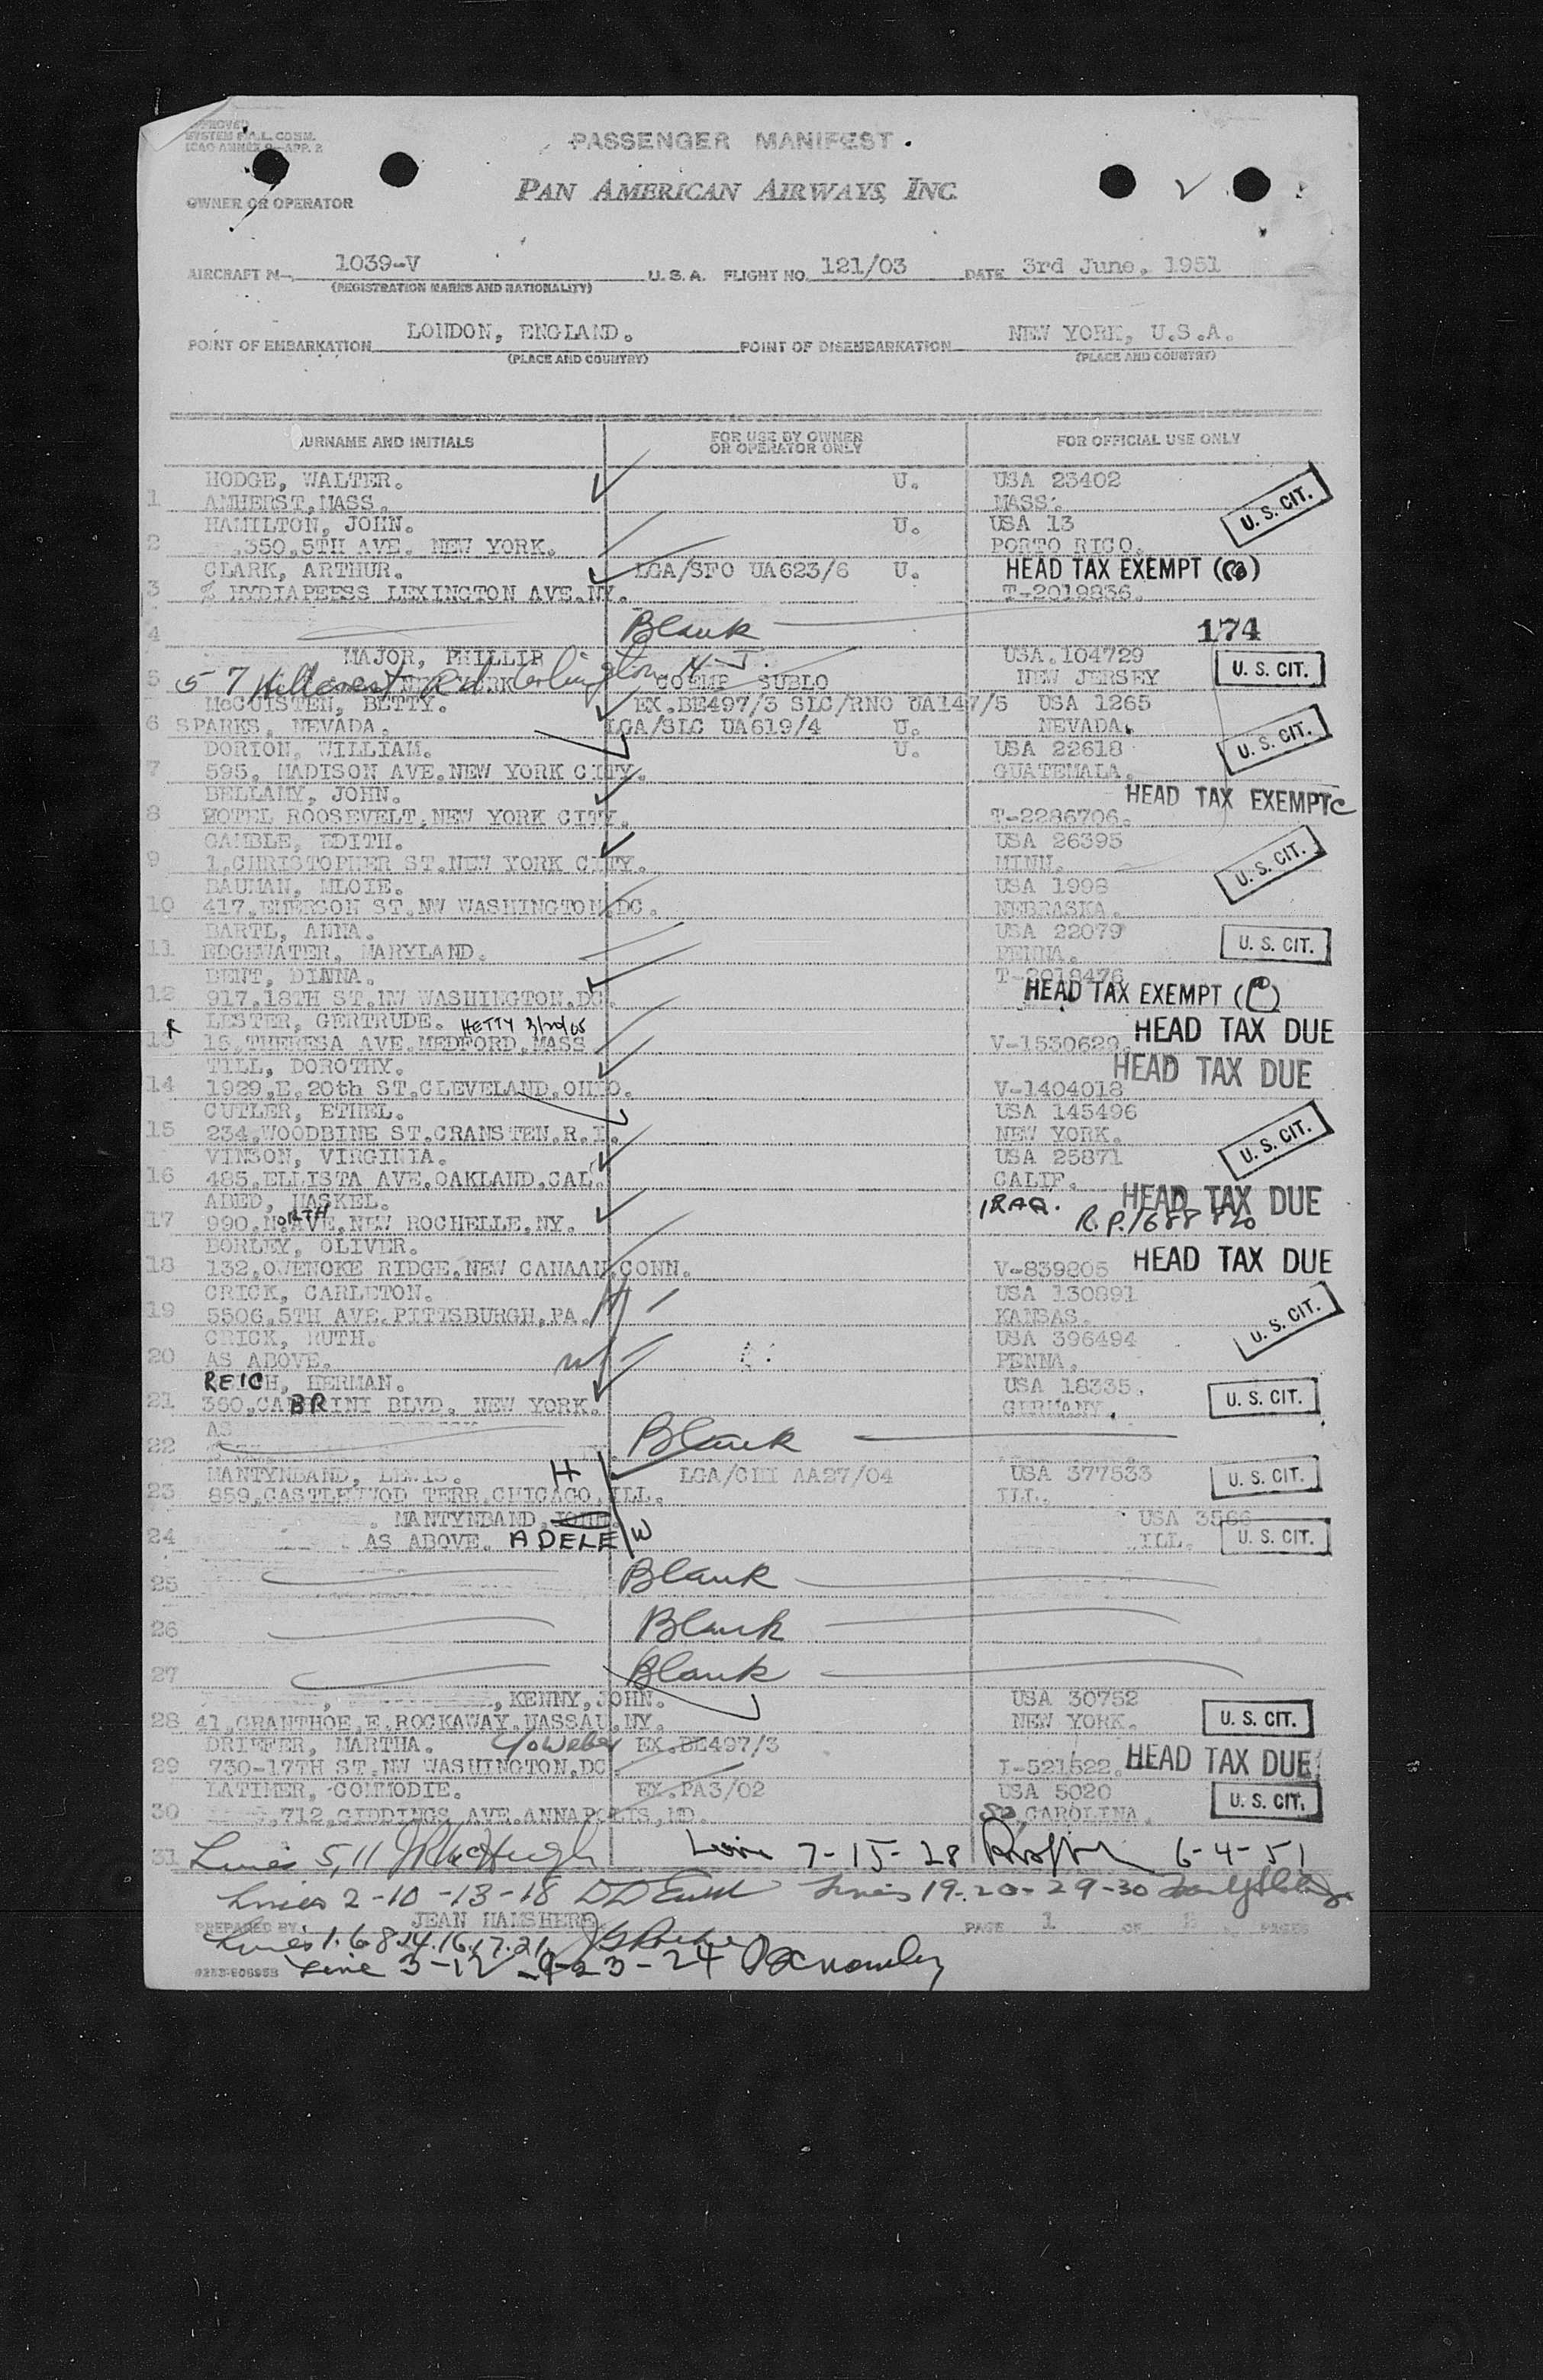 APPROVED
SYSTEM F.A.L. COMM.
ICAO ANNEX 9-APP. 2
PASSENGER MANIFEST
OWNER OR OPERATOR PAN AMERICAN AIRWAYS, INC.
AIRCRAFT N- 1039-V U.S.A. FLIGHT NO. 121/03 DATE 3rd June, 1951
(REGISTRATION MARKS AND NATIONALITY)
POINT OF EMBARKATION LONDON, ENGLAND. POINT OF DISEMBARKATION NEW YORK, U.S.A.
(PLACE AND COUNTRY) (PLACE AND COUNTRY)
SURNAME AND INITIALS FOR USE BY OWNER OR OPERATOR ONLY FOR OFFICIAL USE ONLY
HODGE, WALTER. U. USA 23402
1 AMHERST, MASS. MASS. U. S. CIT.
HAMILTON, JOHN. U. USA 13
2 350, 5TH AVE. NEW YORK. PORTO RICO.
CLARK, ARTHUR. LGA/SFO UA623/6 U. HEAD TAX EXEMPT
3 LEXINGTON AVE. NY. T-2019836.
4 Blank 174
MAJOR, PHILLIP N.J. USA. 104729
5 57 Hillcrest Rd Arlington COEMP SUBLO NEW JERSEY U. S. CIT.
McCUISTEN, BETTY. EX. BE497/3 SLC/RNO UA147/5 USA 1265
6 SPARKS, NEVADA. LGA/SLC UA619/4 U. NEVADA.
DORION, WILLIAM. U. USA 22618 U. S. CIT.
7 595, MADISON AVE. NEW YORK CITY. GUATEMALA.
BELLAMY, JOHN. HEAD TAX EXEMPT C
8 HOTEL ROOSEVELT, NEW YORK CITY. T-2286706.
GAMBLE, EDITH. USA 26395
9 1, CHRISTOPHER ST. NEW YORK CITY. MINN. U. S. CIT.
BAUMAN, MLOIE. USA 1998
10 417, EMERSON ST. NW WASHINGTON, DC. NEBRASKA.
BARTL, ANNA. USA 22079
11 EDGEWATER, MARYLAND. PENNA. U. S. CIT.
DENT, DIANA. T-2018476
12 917, 18TH ST. NW WASHINGTON, DC. HEAD TAX EXEMPT (C)
LESTER, GERTRUDE. HETTY 3/20/05 HEAD TAX DUE
13 15, THERESA AVE. MEDFORD, MASS V-1530629.
TILL, DOROTHY. HEAD TAX DUE
14 1929, E. 20th ST. CLEVELAND, OHIO. V-1404018
CUTLER, ETHEL. USA 145496
15 234, WOODBINE ST. CRANSTEN, R.I. NEW YORK. U. S. CIT.
VINSON, VIRGINIA. USA 25871
16 485, ELLISTA AVE. OAKLAND, CAL. CALIF.
ADED, HASKEL. IRAQ. HEAD TAX DUE
17 990, NORTH AVE. NEW ROCHELLE, NY. R.P. 1688820
DORLEY, OLIVER. HEAD TAX DUE
18 132, OVENOKE RIDGE, NEW CANAAN, CONN. V-839805
CRICK, CARLETON. USA 130891
19 5506, 5TH AVE. PITTSBURGH, PA. H KANSAS. U. S. CIT.
CRICK, RUTH. USA 396494
20 AS ABOVE. W PENNA.
REICH, HERMAN. USA 18335.
21 360, CABRINI BLVD. NEW YORK. GERMANY. U. S. CIT.
22 Blank
MANTYNBAND, LEWIS. H LGA/CHI AA27/04 USA 377533
23 859, CASTLEWOOD TERR. CHICAGO, ILL. ILL. U. S. CIT.
MANTYNBAND, USA 3566
24 AS ABOVE. ADELE W ILL. U. S. CIT.
25 Blank
26 Blank
27 Blank
KENNY, JOHN. USA 30752
28 41, GRANTHOE, E. ROCKAWAY, NASSAU, NY. NEW YORK. U. S. CIT.
DRIFFER, MARTHA. c/o Weber EX. BE497/3
29 730-17TH ST. NW WASHINGTON, DC. I-521522. HEAD TAX DUE
LATIMER, COMMODIE. EX. PA3/02 USA 5020
30 712, GIDDINGS AVE. ANNAPOLIS, MD. SO. CAROLINA. U. S. CIT.
31 Lines 5, 11 JR McHugh Line 7-15-28 6-4-51
Lines 2-10-13-18 Lines 19-20-29-30
PREPARED BY JEAN HAMSHERE PAGE 1 OF PAGES
Lines 1.6.8.14.16.17.21
Line 3-12-9-23-24